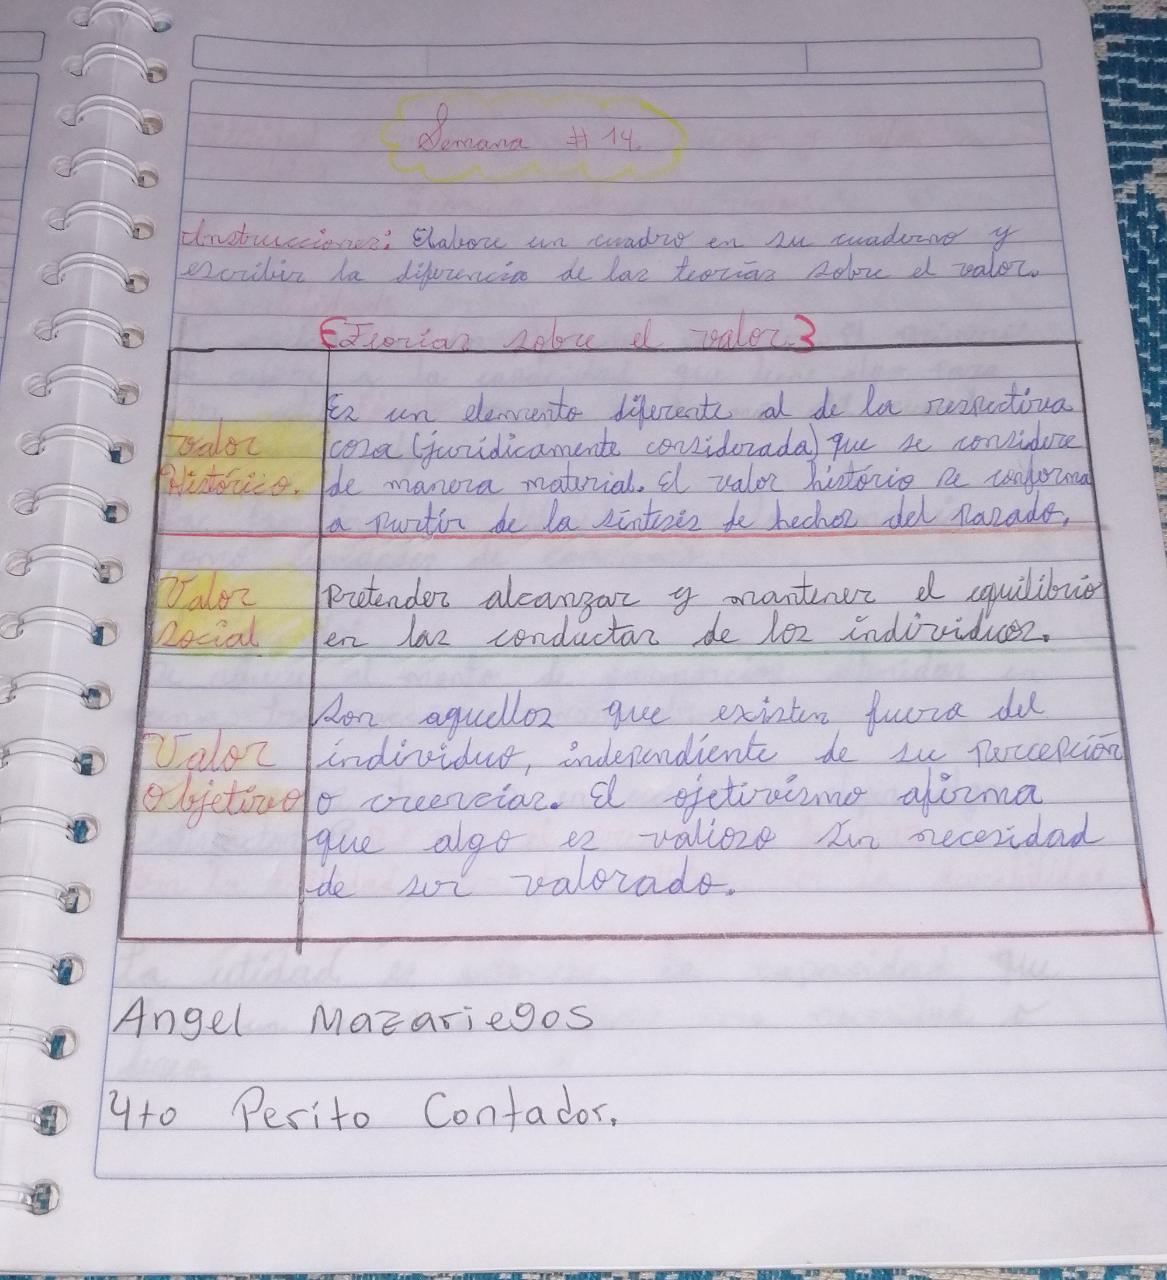 Semana # 14.
Instrucciones: Elabore un cuadro en su cuaderno y
escribir la diferencia de las teorías sobre el valor.
Teorías sobre el valor.
Valor
Histórico.
Es un elemento diferente al de la respectiva
cosa (jurídicamente considerada) que se considere
de manera material. El valor histório se conforma
a partir de la síntesis de hechos del pasado.
Valor
social
Pretender alcanzar y mantener el equilibrio
en las conductas de los individuos.
Valor
Objetivo
Son aquellos que existen fuera del
individuo, independiente de su percepción
o creencias. El ojetivismo afirma
que algo es valioso sin necesidad
de ser valorado.
Angel Mazariegos
4to Perito Contador.